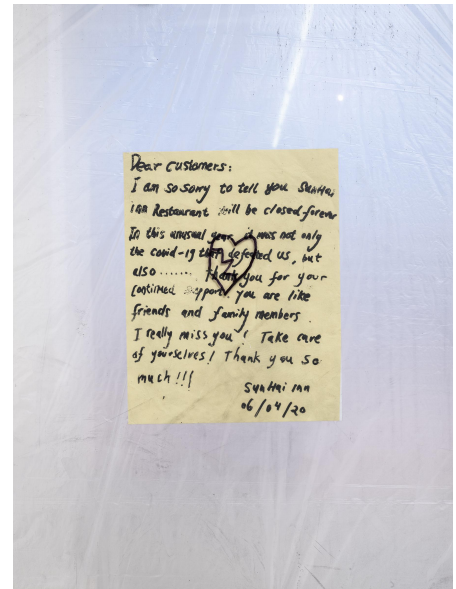 Dear customers:
I am so sorry to tell you SunHai
inn Restaurant will be closed forever
In this unusual year, it was not only
the covid-19 that defeated us, but
also ....... Thank you for your
continued support. you are like
friends and family members.
I really miss you! Take care
of yourselves! Thank you so
much!!!
SunHai inn
06/04/20